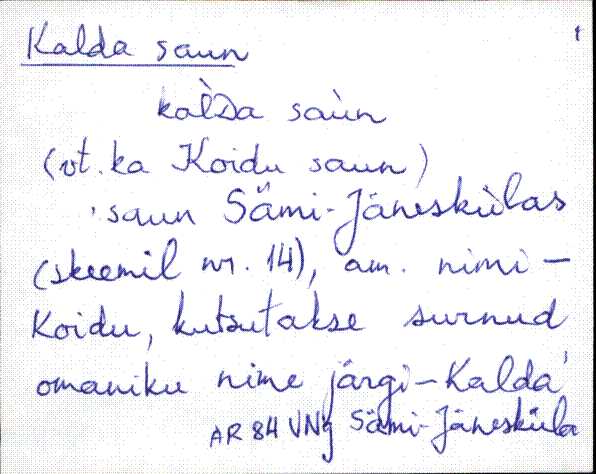 Kalda saun
kal̀Da saùn
(vt. ka Koidu saun)
'saun Sämi-Jänesküĺas
(skeemil nr. 14), am. nimi –
Koidu, kutsutakse surnud
omaniku nime järgi – Kalda'
AR 84 VNg Sämi-Jäneskülä